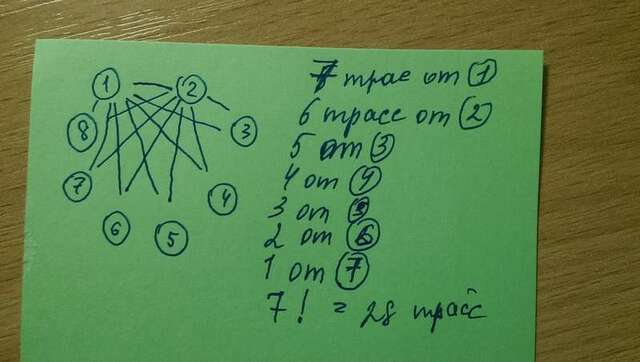 1
2
8
3
7
4
6
5
7 трас от 1
6 трасс от 2
5 от 3
4 от 4
3 от 5
2 от 6
1 от 7
7! = 28 трасс